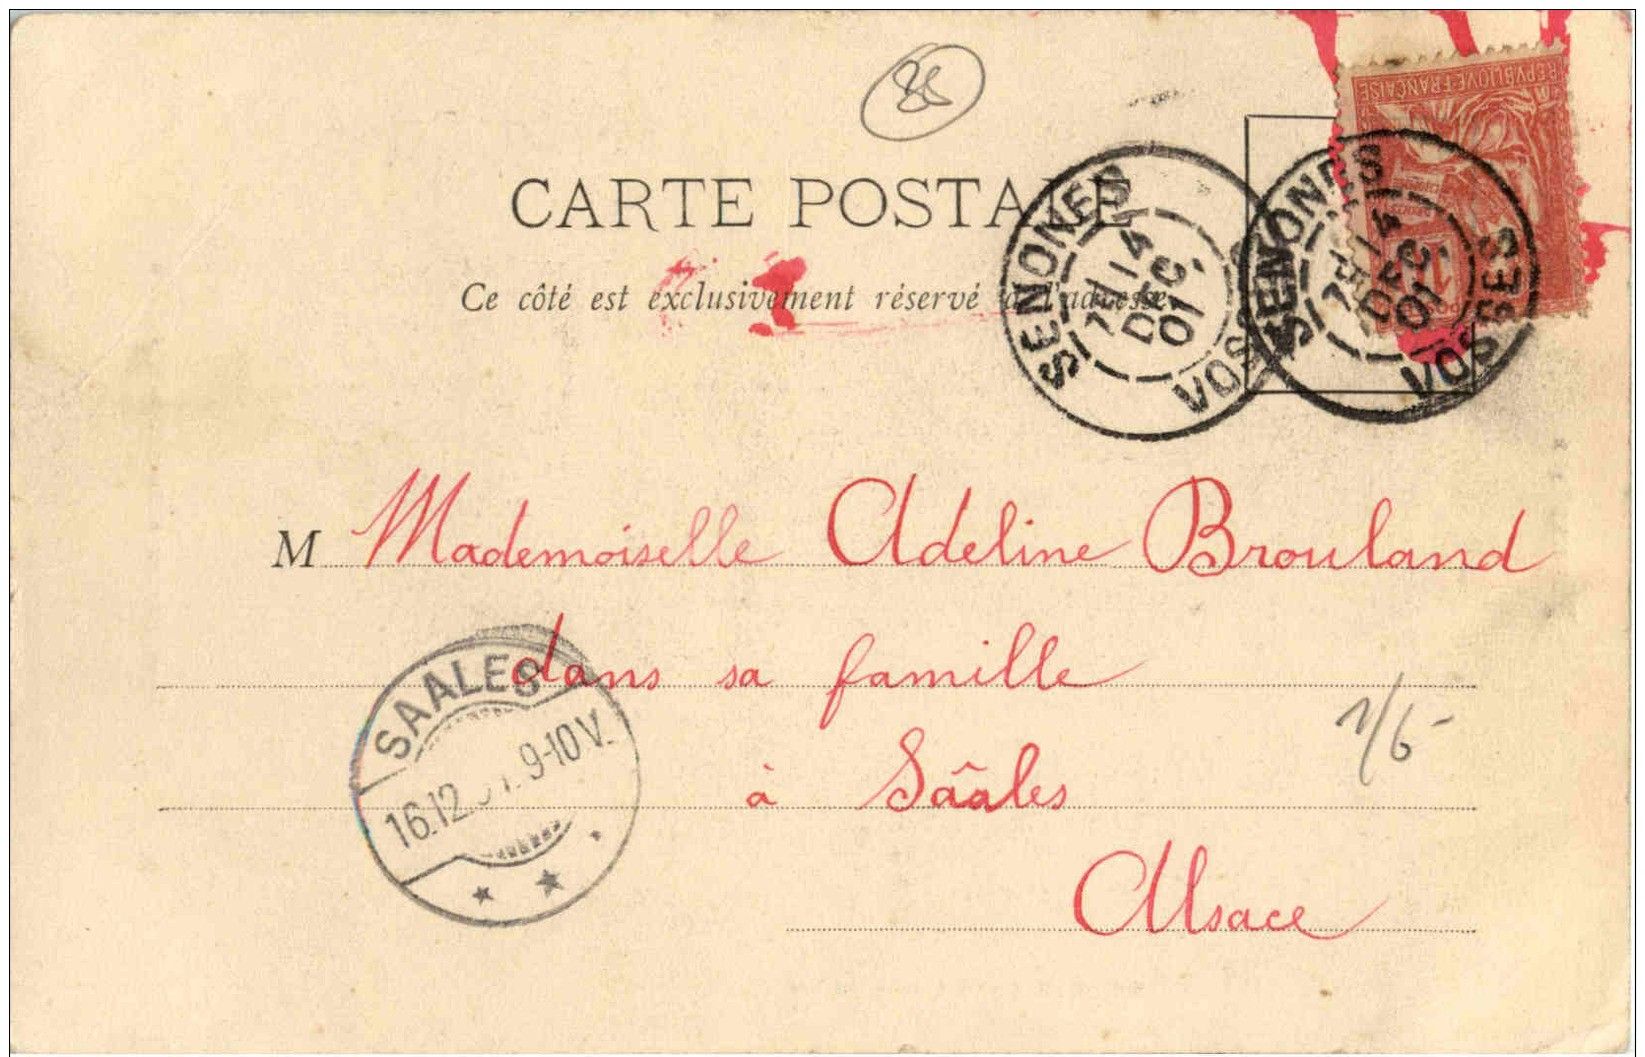 88
REPVBLIQVE FRANÇAISE
CARTE POSTALE
Ce côté est exclusivement réservé à l'adresse
SENONES
14
DEC.
01
VOSGES
SENONES
14
DEC.
01
VOSGES
M Mademoiselle Adeline Brouland
dans sa famille
à Sâales
Alsace
SAALES
16.12.01. 9-10V.
1/6-